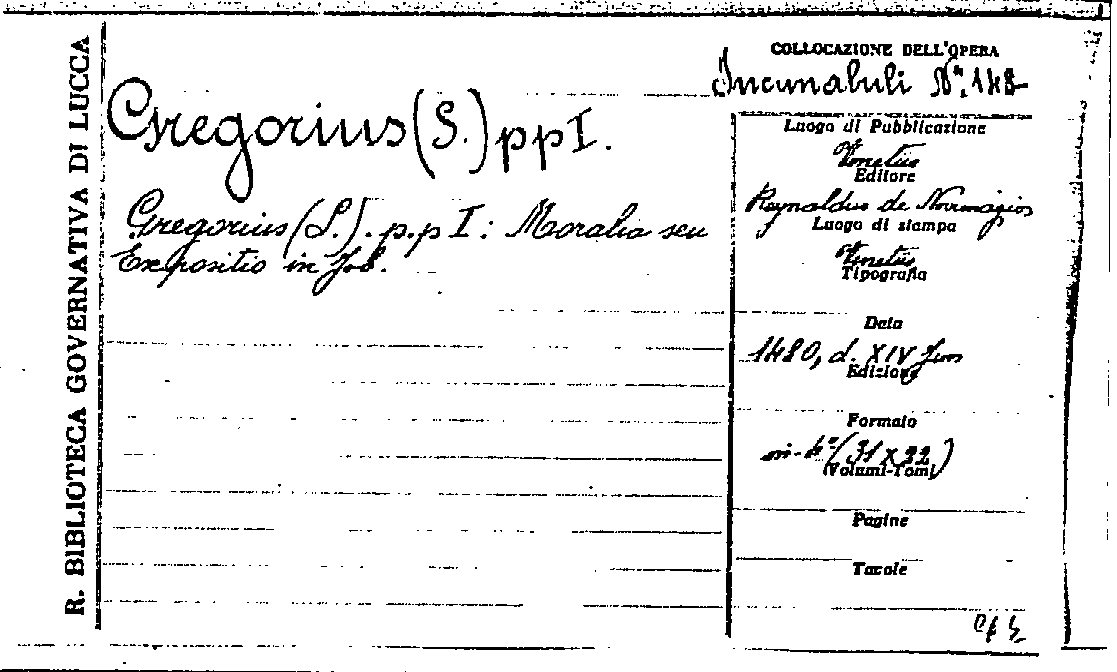 R. BIBLIOTECA GOVERNATIVA DI LUCCA
Gregorius (S.) pp I.
Gregorius (S.). p.p I: Moralia seu
Expositio in Job.
COLLOCAZIONE DELL'OPERA
Incunabuli Nº. 148
Luogo di Pubblicazione
Venetiis
Editore
Reynaldus de Novimagio
Luogo di stampa
Venetiis
Tipografia
Data
1480, d. XIV Jun
Edizione
Formato
in-4º (31 x 22)
(Volumi-Tomi)
Pagine
Tavole